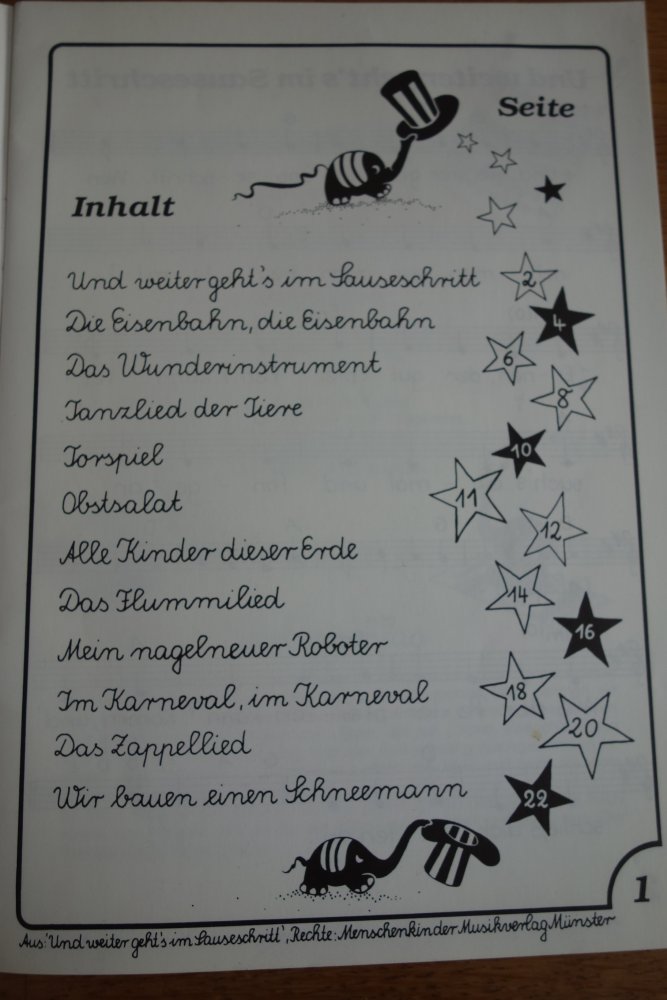 Seite
Inhalt
Und weiter geht's im Sauseschritt 2
Die Eisenbahn, die Eisenbahn 4
Das Wunderinstrument 6
Tanzlied der Tiere 8
Torspiel 10
Obstsalat 11
Alle Kinder dieser Erde 12
Das Flummilied 14
Mein nagelneuer Roboter 16
Im Karneval, im Karneval 18
Das Zappellied 20
Wir bauen einen Schneemann 22
1
Aus: 'Und weiter geht's im Sauseschritt', Rechte: Menschenkinder Musikverlag Münster